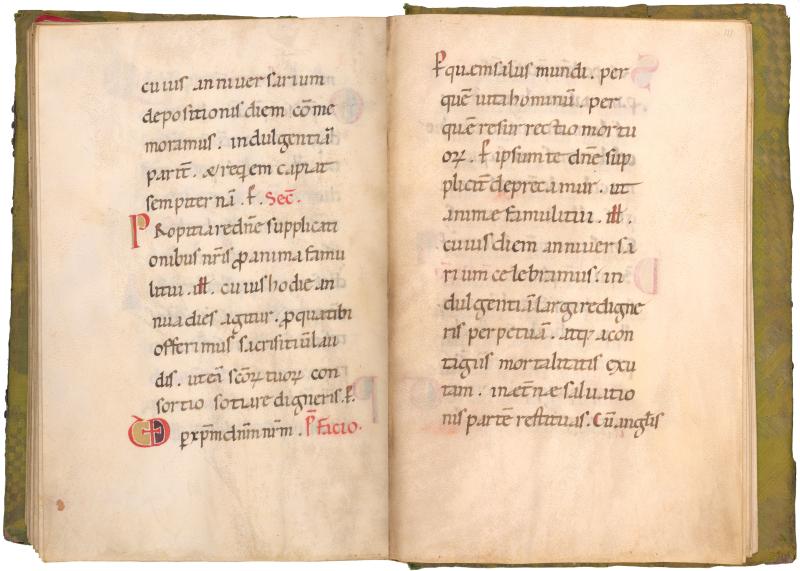 cuius anniuersarium
depositionis diem cōme
moramus. indulgentiā
partiē. & reqiem capiat
sempiternā. ꝑ. Sec̄.
PRopitiare dn̄e supplicati
onibus nr̄is ꝓ anima famu
li tui. ill. cuius hodie an
nua dies agitur. ꝓ qua tibi
offerimus sacrificiū lau
dis. ut eā scōꝝ tuoꝝ con
sortio sotiare digneris. ꝑ.
ꝑ xp̄m dn̄m nr̄m. P̄facio.
ꝑ quem salus mundi. per
quē uita hominū. per
quē resurrectio mortu
oꝝ. ꝑ ipsum te dn̄e sup
pliciť deprecamur. ut
animae famuli tui. ill.
cuius diem anniuersa
rium celebramus. in
dulgentiā largiri digne
ris perpetuā. atq; a con
tagiis mortalitatis exu
tam. in aet̄nae saluatio
nis partē restituas. Cū angl̄is